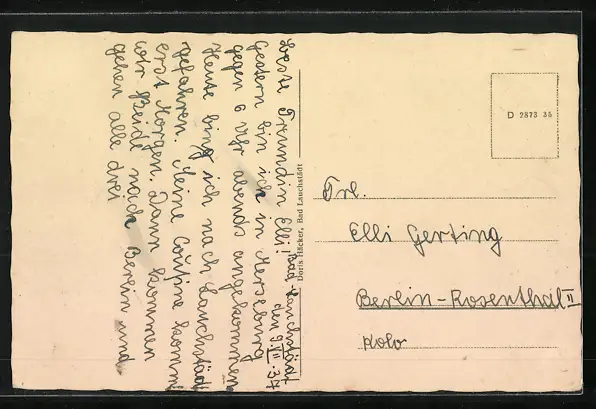 Bad-Lauchstädt
den 9.III.37
Liebe Freundin Elli!
Gestern bin ich in Merseburg
gegen 6 Uhr abends angekommen
Heute bing ich nach Lauchstädt
gefahren. Meine Cousine kommt
erst Morgen. Dann kommen
wir Beide nach Berlin und
gehen alle drei
Doris Häcker, Bad Lauchstädt
D 2873 35
Frl.
Elli Gerting
Berlin-Rosenthal II
Kolo